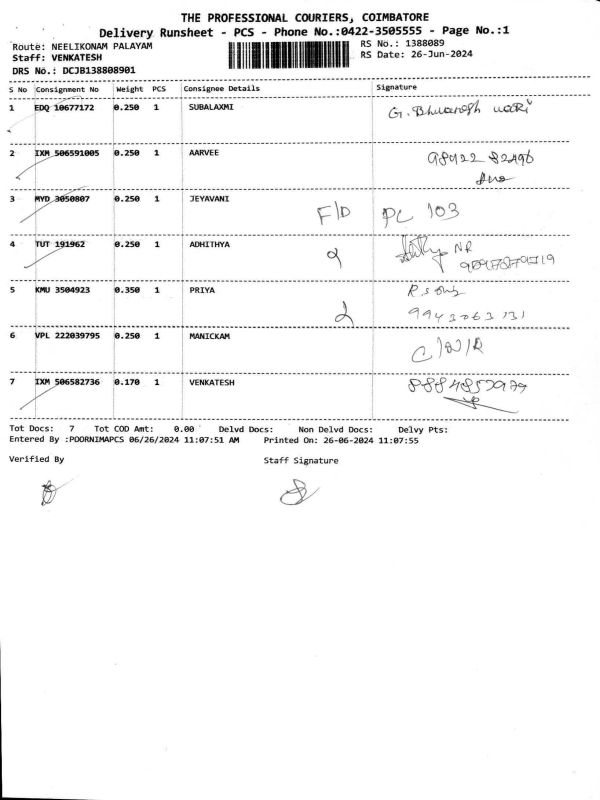 THE PROFESSIONAL COURIERS, COIMBATORE
Delivery Runsheet - PCS - Phone No.:0422-3505555 - Page No.:1
Route: NEELIKONAM PALAYAM
RS No.: 1388089
Staff: VENKATESH
RS Date: 26-Jun-2024
DRS No.: DCJB138808901
S No Consignment No Weight PCS Consignee Details Signature
1 EDQ 10677172 0.250 1 SUBALAXMI G.
2 IXM 506591005 0.250 1 AARVEE 98422 82496
3 MYD 3050807 0.250 1 JEYAVANI F/D PC 103
4 TUT 191962 0.250 1 ADHITHYA 2 NR
5 KMU 3504923 0.350 1 PRIYA 2
9943063131
6 VPL 222039795 0.250 1 MANICKAM
7 IXM 506582736 0.170 1 VENKATESH
Tot Docs: 7 Tot COD Amt: 0.00 Delvd Docs: Non Delvd Docs: Delvy Pts:
Entered By :POORNIMAPCS 06/26/2024 11:07:51 AM Printed On: 26-06-2024 11:07:55
Verified By Staff Signature